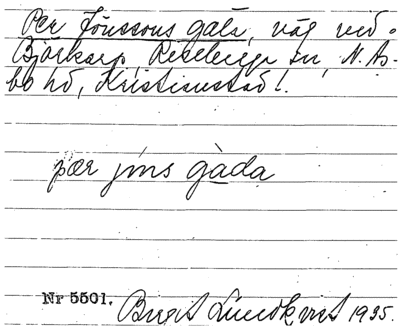 Per Jönssons gata, väg vid
Björkarp, Riseberga sn, N. Ås-
bo hd, Kristianstad l.
pær jɷns gàda
Nr 5501. Birgit Lundkvist 1935.